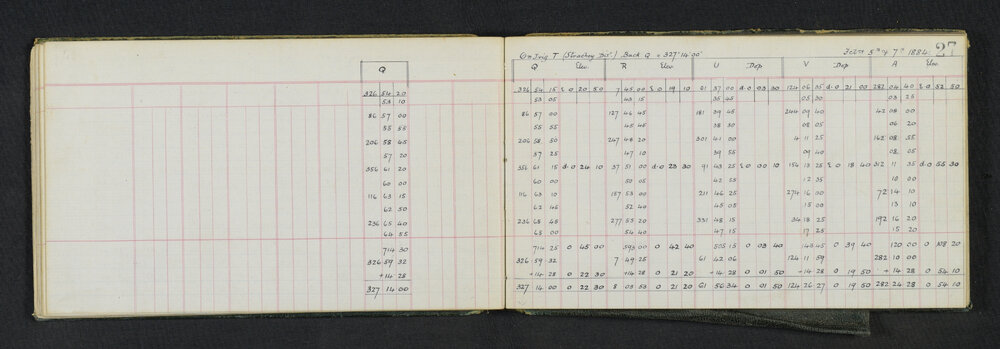 Q
326 54 20
53 10
86 57 00
55 55
206 58 45
57 20
356 61 20
60 00
116 63 15
62 50
236 65 40
64 55
714 30
326 59 32
+14 28
327 14 00
On Trig T (Strachey Dis.) Back Q = 327° 14' 00" Febr 5th & 7th 1884 27
Q Elev R Elev U Dep V Dep A Elev
326 54 15 E 0 20 50 7 45 00 E 0 19 10 61 37 00 d 0 03 30 124 06 35 d 0 21 00 282 04 40 E 0 52 50
53 05 43 15 35 45 05 30 03 25
86 57 00 127 46 45 181 39 45 244 09 40 42 08 00
55 55 45 45 38 30 08 05 06 20
206 58 50 247 48 20 301 41 00 4 11 25 162 08 55
57 25 47 10 39 55 09 40 08 05
356 61 15 d 0 24 10 37 51 00 d 0 23 30 91 43 25 E 0 00 10 154 13 25 E 0 18 40 312 11 35 d 0 55 30
60 00 50 05 42 55 12 35 10 00
116 63 10 157 53 00 211 46 25 274 16 00 72 14 10
62 45 52 40 45 05 15 00 13 10
236 65 45 277 55 20 331 48 15 34 18 25 192 16 20
65 00 54 40 47 15 17 25 15 20
714 25 0 45 00 593 00 0 42 40 505 15 0 03 40 143 45 0 39 40 120 00 0 108 20
326 59 32 7 49 25 61 42 06 124 11 59 282 10 00
+14 28 0 22 30 +14 28 0 21 20 +14 28 0 01 50 +14 28 0 19 50 +14 28 0 54 10
327 14 00 0 22 30 8 03 53 0 21 20 61 56 34 0 01 50 124 26 27 0 19 50 282 24 28 0 54 10